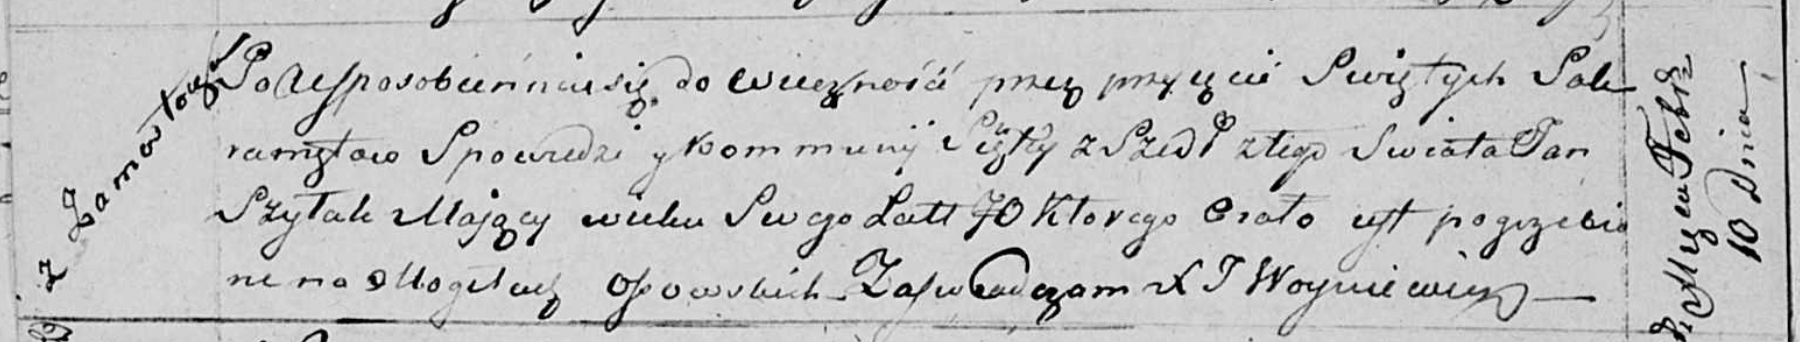 z Zamostocza
Po Usposobieniu się do wieczności przez przyięcie Swiętych Sak
ramętow Spowiedzi y Kommunij Swiętey zszedł z tego Swiata Jan
Szyłak Maiący wieku Swego Latt 70 Ktorego Ciało iest pogrzebio
ne na Mogiłach Osowskich Zaswiadczam X J Woyniewicz
10 Dnia